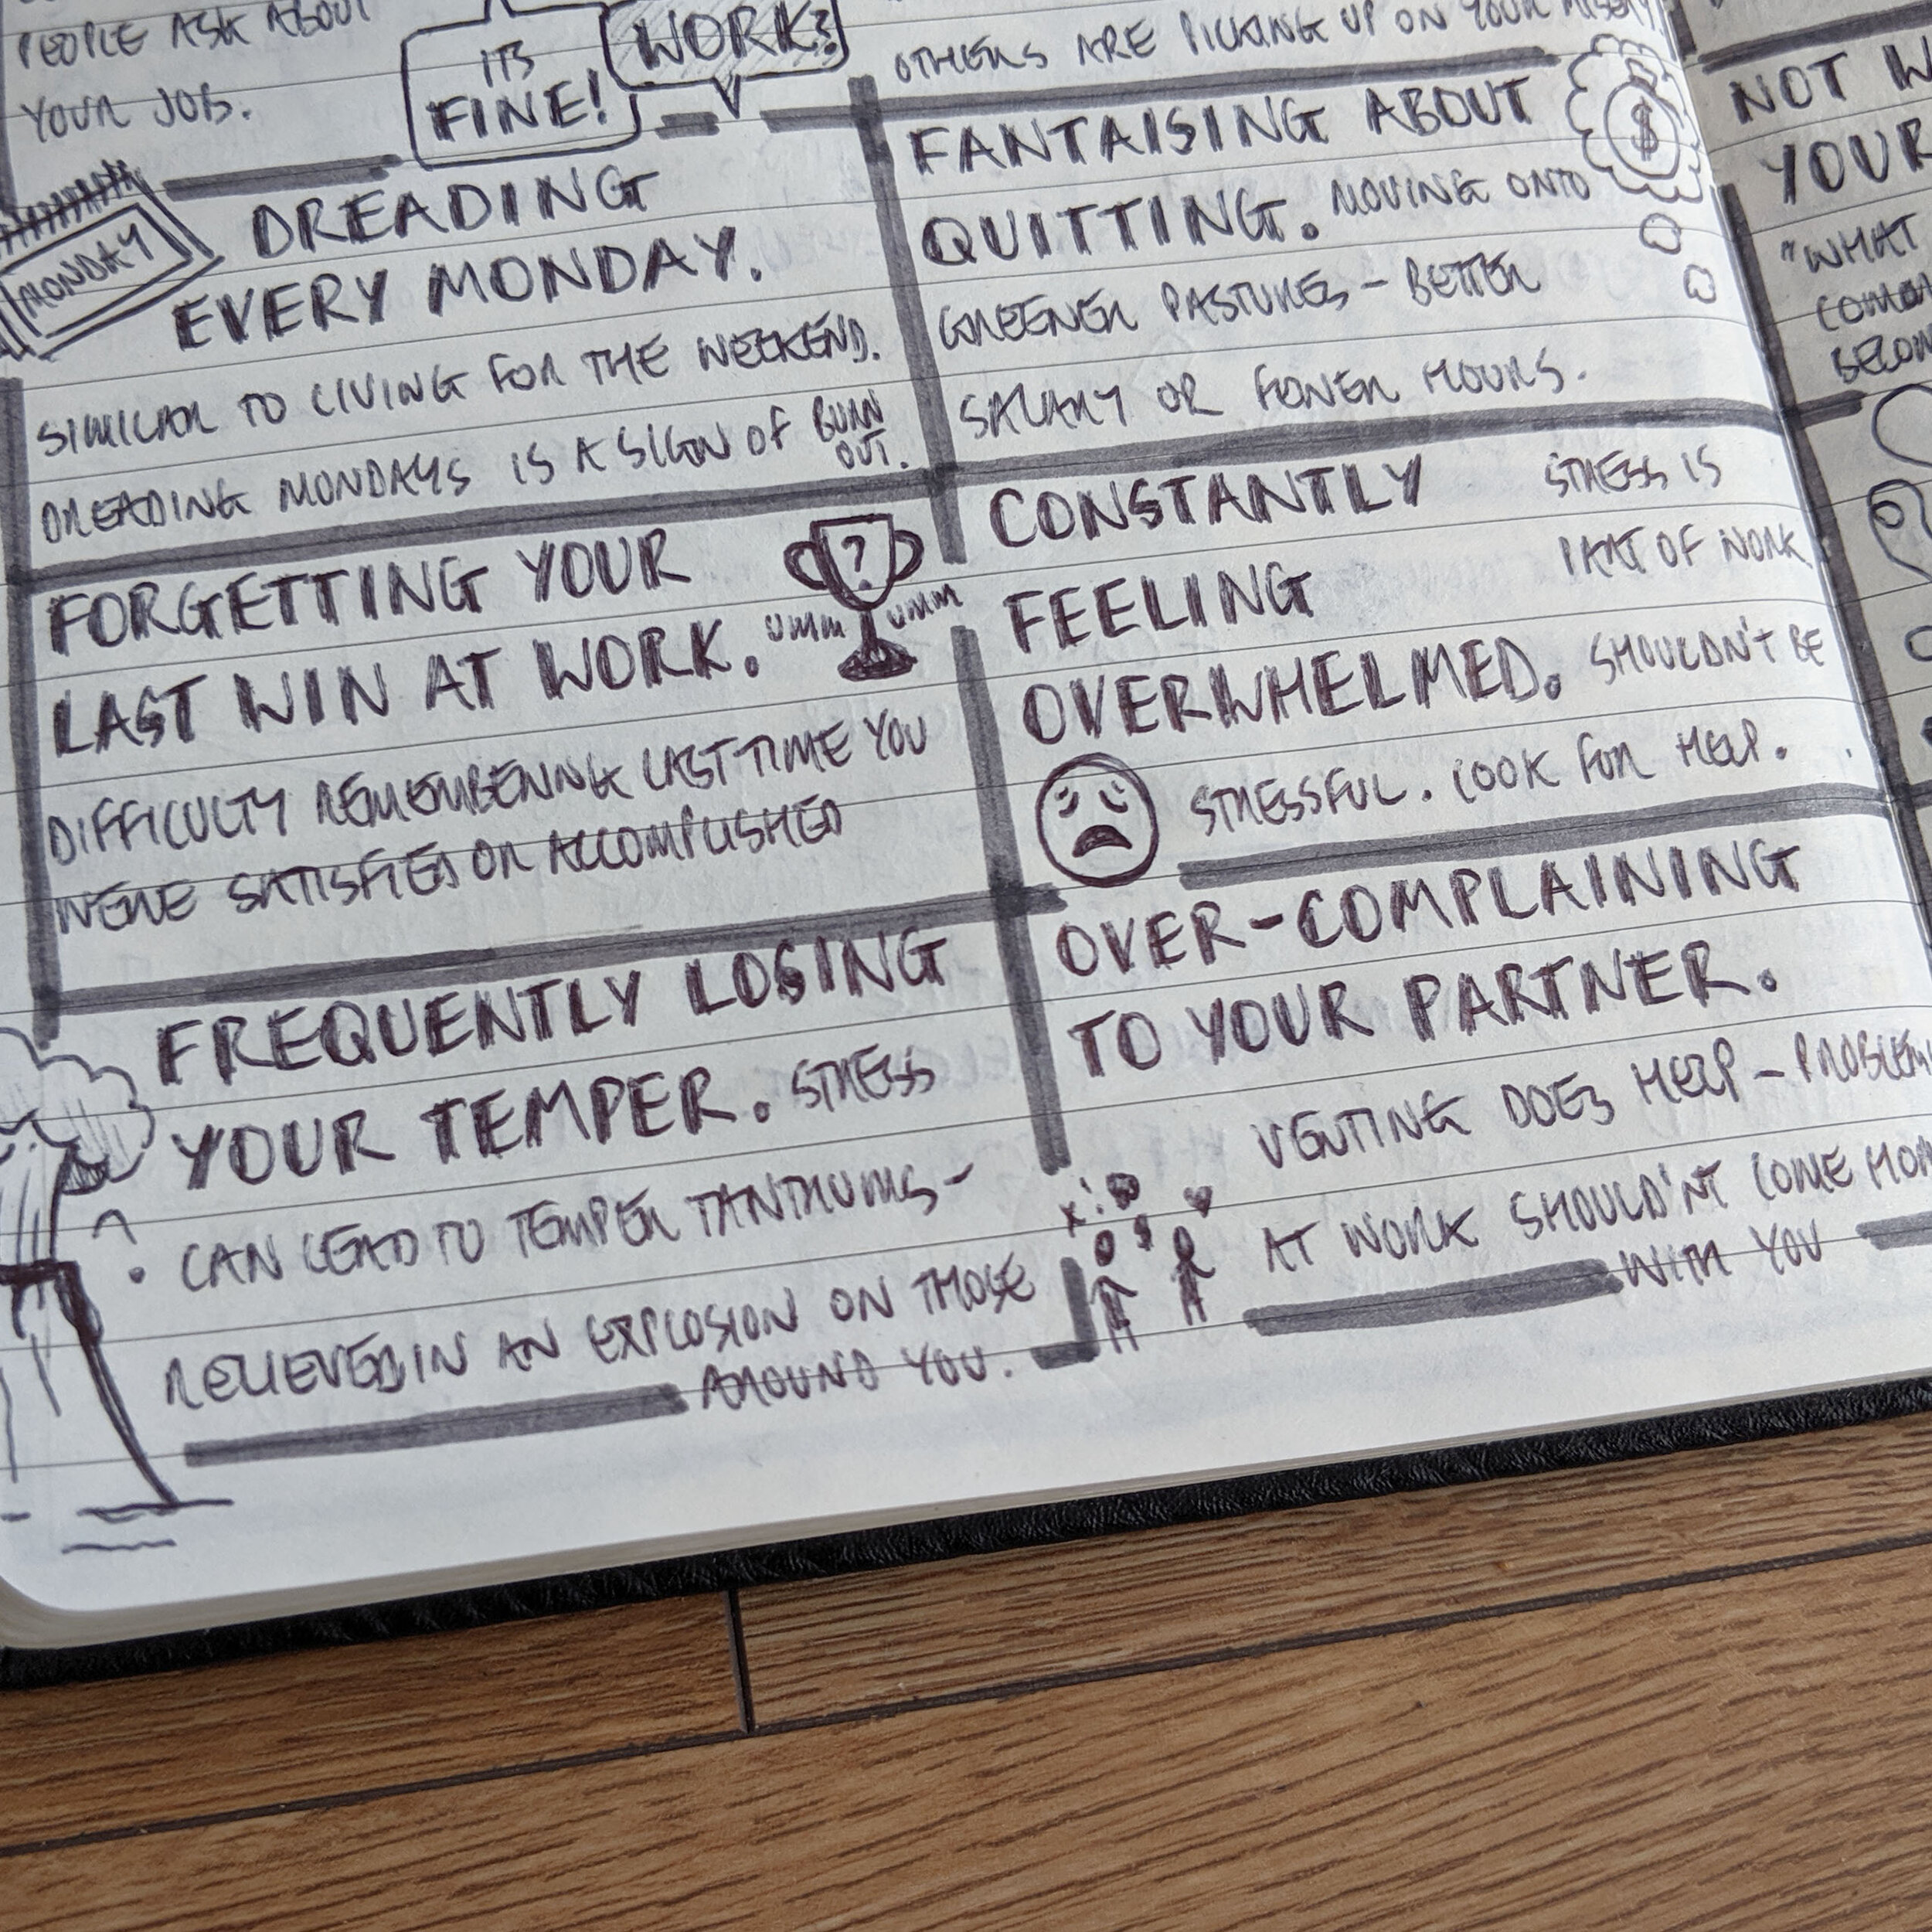 PEOPLE ASK ABOUT
YOUR JOB.
ITS
FINE!
WORK?
MONDAY
DREADING
EVERY MONDAY.
SIMILAR TO LIVING FOR THE WEEKEND.
DREADING MONDAYS IS A SIGN OF BURN
OUT.
FORGETTING YOUR
LAST WIN AT WORK.
?
UMM UMM
DIFFICULTY REMEMBERING LAST TIME YOU
WERE SATISFIED OR ACCOMPLISHED
FREQUENTLY LOSING
YOUR TEMPER. STRESS
CAN LEAD TO TEMPER TANTRUMS -
RELIEVED IN AN EXPLOSION ON THOSE
AROUND YOU.
OTHERS ARE PICKING UP ON YOUR MISERY.
FANTAISING ABOUT
QUITTING. MOVING ONTO
GREENER PASTURES - BETTER
SALARY OR FEWER HOURS.
$
CONSTANTLY STRESS IS
FEELING PART OF WORK
OVERWHELMED. SHOULDN'T BE
STRESSFUL. LOOK FOR HELP.
OVER-COMPLAINING
TO YOUR PARTNER.
VENTING DOES HELP - PROBLEM
AT WORK SHOULD'NT COME HOM
WITH YOU
NOT W
YOUR
"WHAT
COM
BECOM